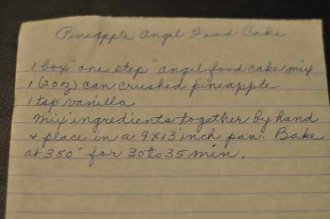 Pineapple Angel Food Cake
1 box "one step" angel food cake mix
1 (20oz) can crushed pineapple
1 tsp vanilla
Mix ingredients together by hand
& place in a 9x13 inch pan. Bake
at 350° for 30 to 35 min.